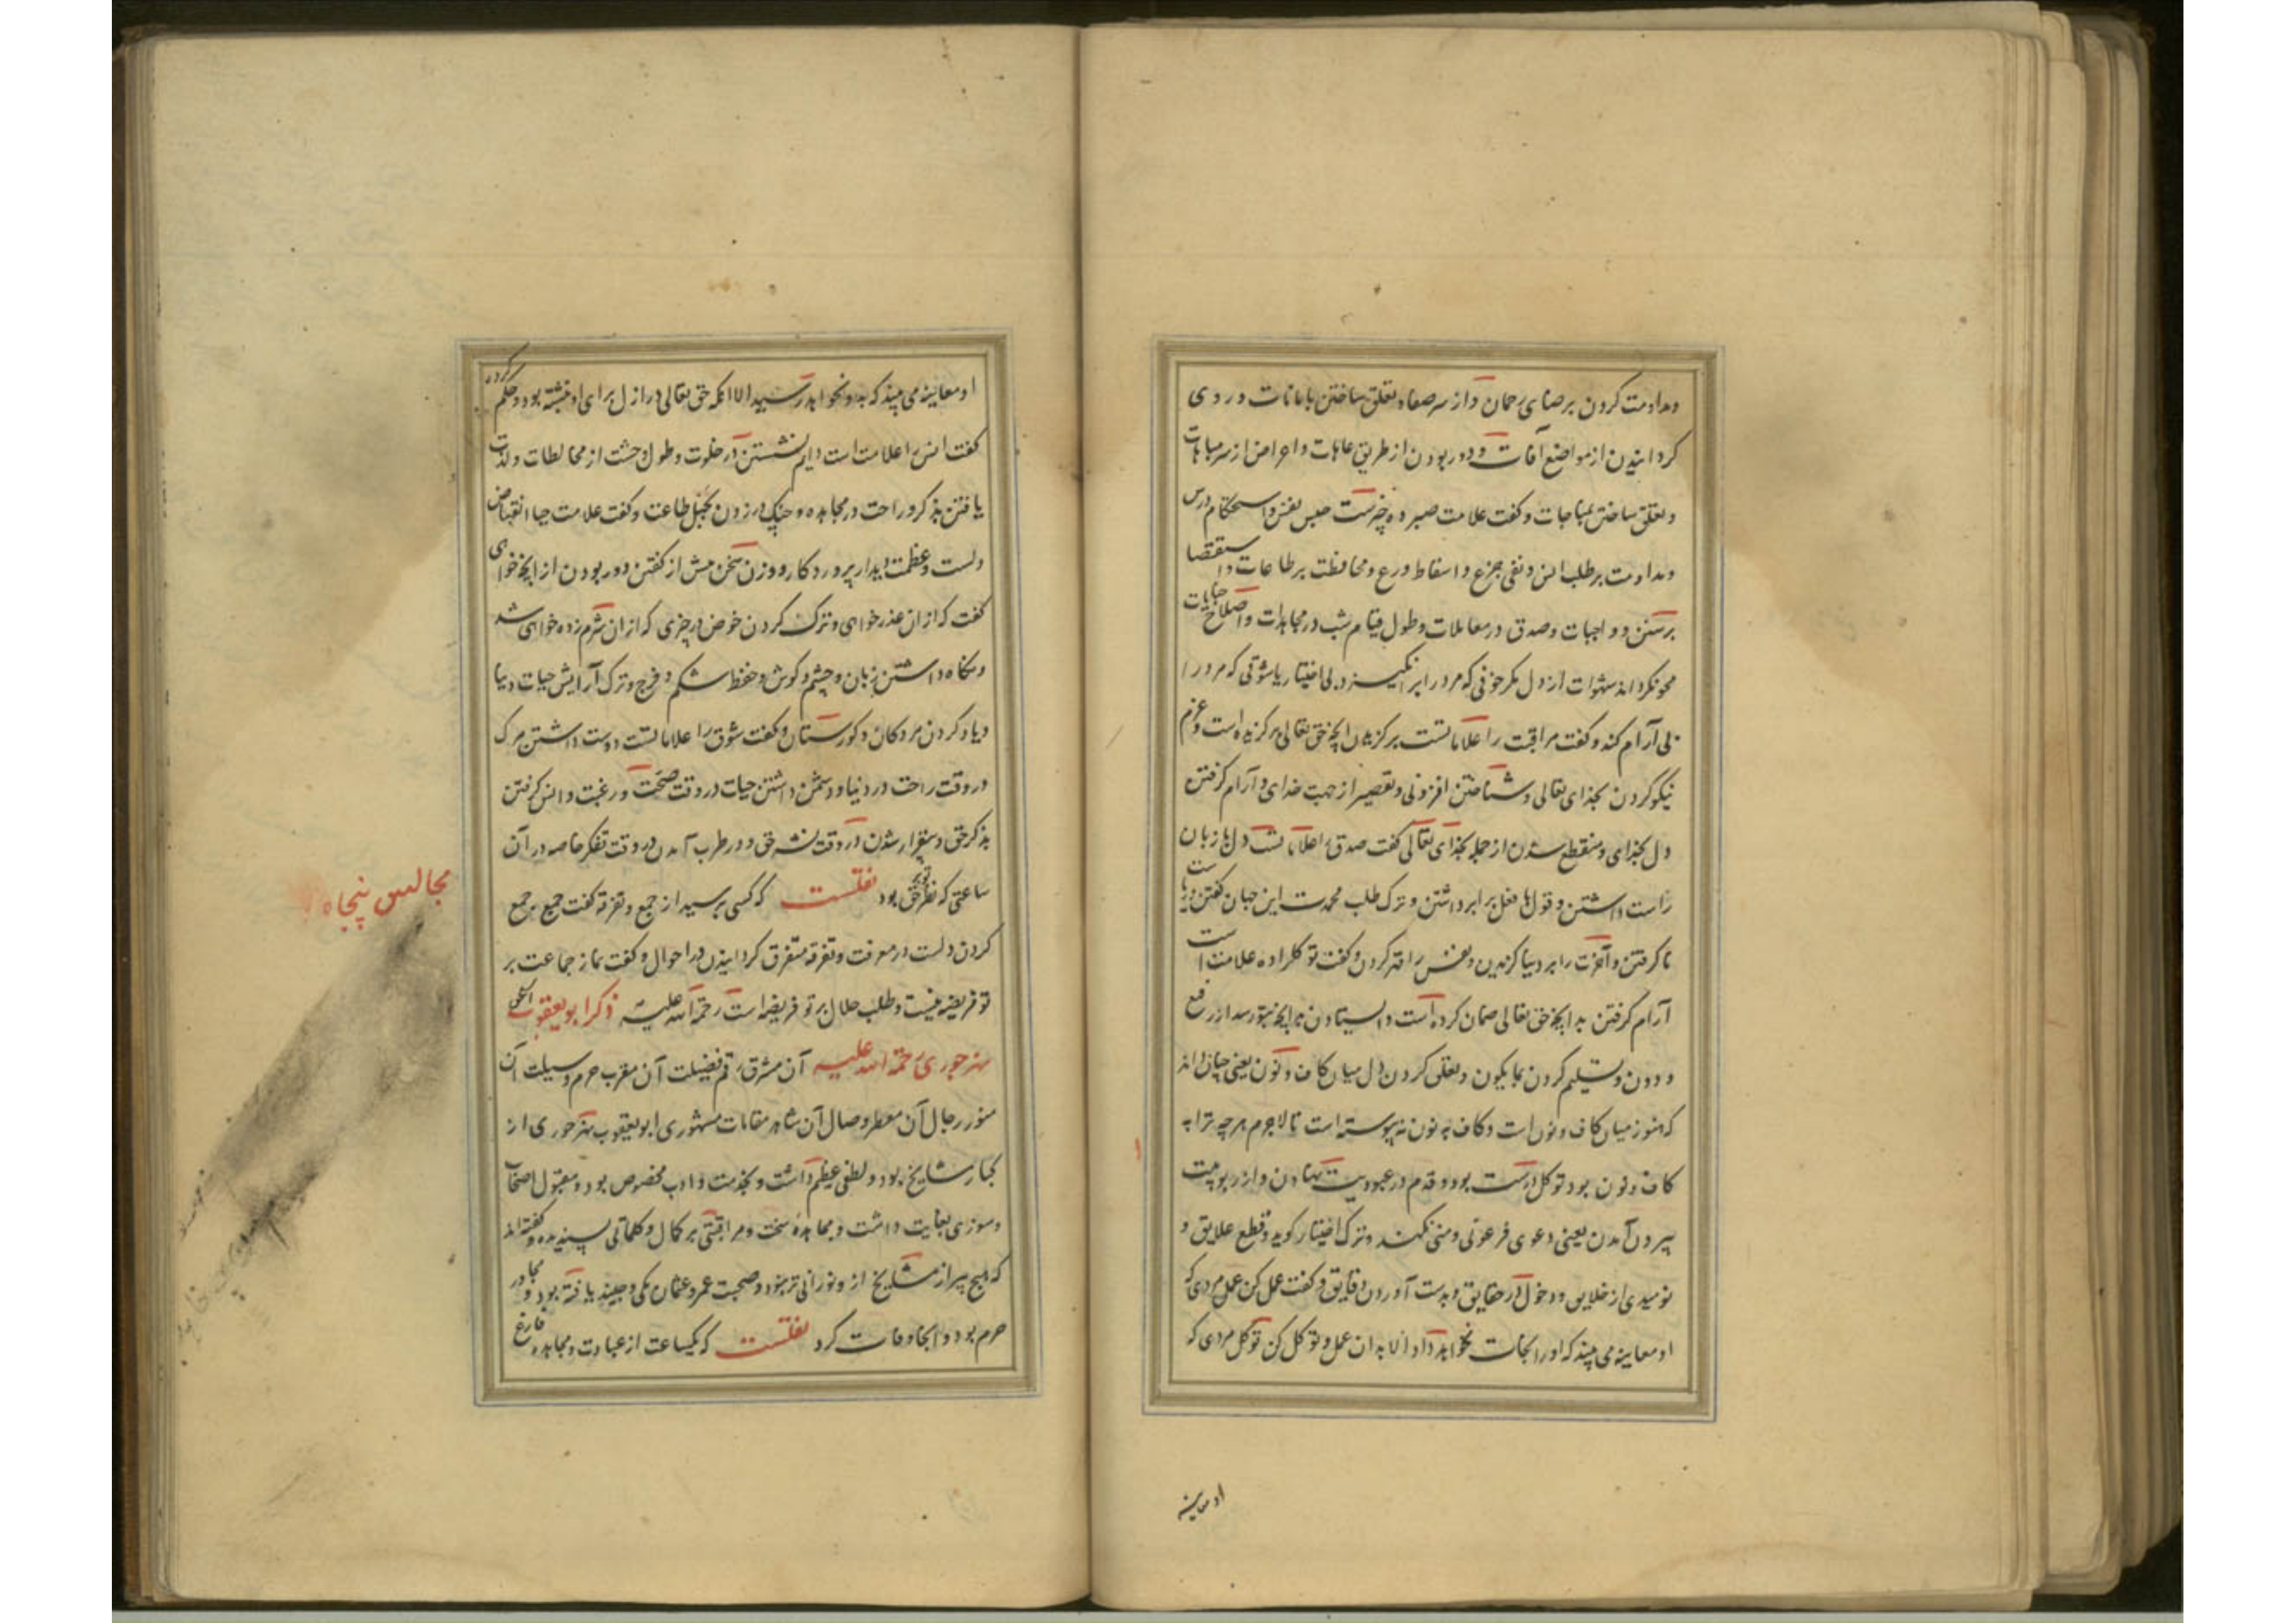 ومداومت کردن بر رضای رحمان و از سر صفا و تعلق ساختن بامانات و روی
کردانیدن از مواضع آفات و دور بودن از طریق عاهات و اعراض از سر مباهات
و تعلق ساختن بمناجات و کفت علامت صبر ده چیزست حبس نفس و استحکام درس
و مداومت بر طلب انس و نفی جزع و اسقاط ورع و محافظت بر طاعات و استقصا
بر سنن و واجبات و صدق در معاملات و طول قیام شب در مجاهدات و اصلاح جنایات
محو نکرداند شهوات از دل مکر خوفی که مرد را برانکیزد بی اختیار یا شوقی که مرد را
بی آرام کند و کفت مراقبت را علاماتست برکزیدن انچه حق تعالی برکزیده است و عزم
نیکو کردن بخدای تعالی و شناختن افزونی و تقصیر از جهت خدای و آرام کرفتن
دل بخدای و منقطع شدن از جمله بخدای تعالی کفت صدق را علاماتست دل با زبان
راست داشتن و قول با فعل برابر داشتن و ترک طلب محمدت این جهان کفتن و ریاست
نا کرفتن و آخرت را بر دنیا کزیدن و نفس را قهر کردن و کفت توکل را ده علامت است
آرام کرفتن بدانچه حق تعالی ضمان کرده است و ایستادن بدانچه بتو رسد از رفع
و دون و تسلیم کردن بما یکون و تعلق کردن دل میان کاف و نون یعنی چنان داند
که هنوز میان کاف و نون است و کاف به نون نه پیوسته است تا لاجرم هر چه ترا به
کاف و نون بود توکل درست بود و قدم در عبودیت نهادن و از ربوبیت
بیرون آمدن یعنی دعوی فرعونی و منی نکند و ترک اختیار کوید و قطع علایق و
نومیدی از خلایق و دخول در حقایق و بدست آوردن دقایق و کفت عمل کن عمل مردی که
او معاینه می بیند که او را نجات نخواهد داد الا بدان عمل و توکل کن توکل مردی که
او معاینه
او معاینه می بیند که بدو نخواهد رسید الا انکه حق تعالی در ازل برای او نبشته بود و حکم کرده
کفت انس را علامات است دایم نشستن در خلوت و طول وحشت از مخالطات و لذت
یافتن بذکر و راحت در مجاهده و چنک در زدن بحبل طاعت و کفت علامت حیا انقباض
دلست و عظمت دیدار پروردکار و وزن سخن پیش از کفتن و دور بودن از انچه خواهی
کفت که از ان عذر خواهی و ترک کردن خوض در چیزی که از ان شرم زده خواهی شد
و نکاه داشتن زبان و چشم و کوش و حفظ شکم و فرج و ترک آرایش حیات دنیا
و یاد کردن مردکان و کورستان و کفت شوق را علاماتست دوست داشتن مرک
در وقت راحت در دنیا و دشمن داشتن حیات در وقت صحت و رغبت و انس کرفتن
بذکر حق و بیقرار شدن در وقت نشر حق و در طرب آمدن در وقت تفکر خاصه در آن
ساعتی که نظر حق بود نقلست که کسی پرسید از جمع و تفرقه کفت جمع جمع
کردن دلست در معرفت و تفرقه متفرق کردانیدن در احوال و کفت نماز جماعت بر
تو فریضه نیست و طلب حلال بر تو فریضه است رحمة الله علیه ذکر ابو یعقوب اسحق
نهرجوری رحمة الله علیه آن مشرق رقم فضیلت آن مقرب حرم وسیلت آن
منور رجال آن معطر وصال آن شاهد مقامات مشهوری ابو یعقوب نهرجوری از
کبار مشایخ بود و لطفی عظیم داشت و بخدمت و ادب مخصوص بود و مقبول اصحاب
و سوزی بغایت داشت و مجاهده سخت و مراقبتی بر کمال و کلماتی پسندیده و کفته اند
که هیچ پیر از مشایخ از و نورانی تر نبود و صحبت عمرو عثمان مکی و جنید یافته بود و مجاور
حرم بود و آنجا وفات کرد نقلست که یکساعت از عبادت و مجاهده فارغ
مجالس پنجاه